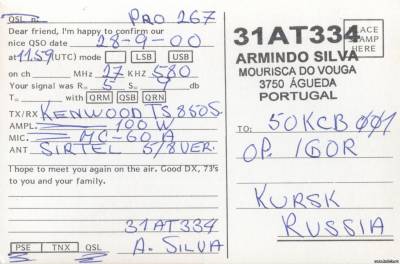 QSL nr. PRO 267
Dear friend, I'm happy to confirm our
nice QSO date 28-9-00
at 11.59 (UTC) mode LSB USB
on ch MHz 27 KHz 580
Your signal was R 5 S 9 db
T with QRM QSB QRN
TX/RX KENWOOD TS 850S.
AMPL. 100 W
MIC. MC-60 A
ANT SIRTEL 5/8 VER.
I hope to meet you again on the air. Good DX, 73's
to you and your family.
31AT334
A. SILVA
PSE TNX QSL
PLACE
STAMP
HERE
31AT334
ARMINDO SILVA
MOURISCA DO VOUGA
3750 ÁGUEDA
PORTUGAL
TO: 50KCB 001
OP. IGOR
KURSK
RUSSIA